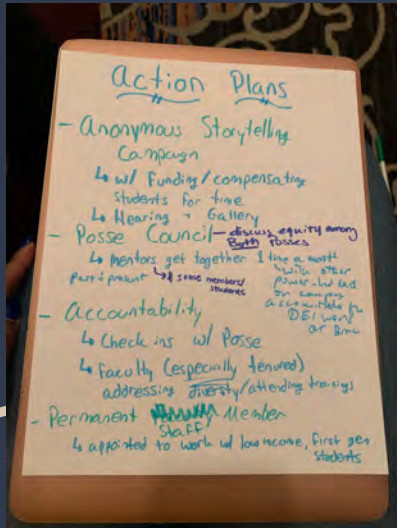 Action Plans
- Anonymous Storytelling
Campaign
↳ w/ Funding/compensating
students for time
↳ Hearing + Gallery
- Posse Council - discuss equity among
Both Posses
↳ mentors get together 1 time a month
past + present ↳ & some members/
students
with other
power
on campus
accountable for
DEI work
- Accountability
↳ Check ins w/ Posse
↳ Faculty (especially tenured)
addressing diversity/attending trainings
- Permanent Staff Member
↳ appointed to work w/ low income, first gen
students